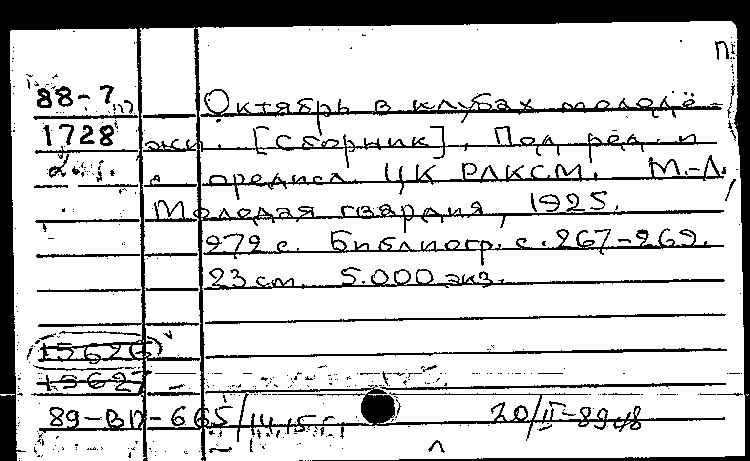 п
88-7 Октябрь в клубах молодё-
1728 жи. [Сборник]. Под ред. и
с предисл. ЦК РЛКСМ. М.-Л.
Молодая гвардия, 1925.
272 с. Библиогр. с. 267-269.
23 см. 5.000 экз.
15626
15627
89-ВП-665/14,15
20/II-89